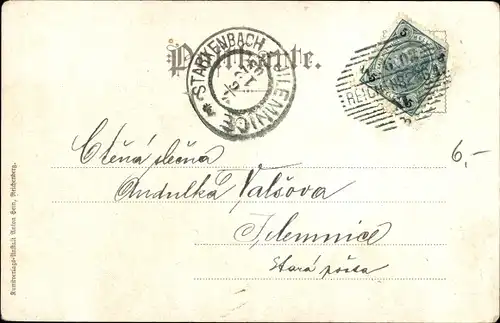 Postkarte.
STARKENBACH
* JILEMNICE *
5
5
5
REICHENBERG
6,-
Ctěná slečna
Andulka Valšova
Jilemnice
Stará pošta
Kunstverlags-Anstalt Anton Gern, Reichenberg.